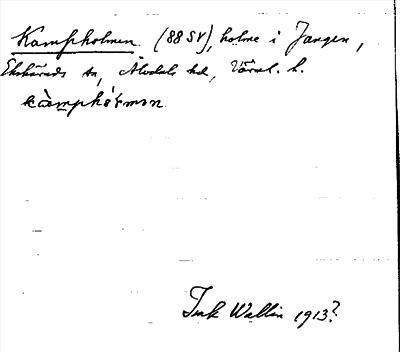 Kampholmen (88 SV), holme i Jangen,
Ekshärads sn, Älvdals hd, Värml. l.
kàmphól'mən
Ink Wallin 1913?